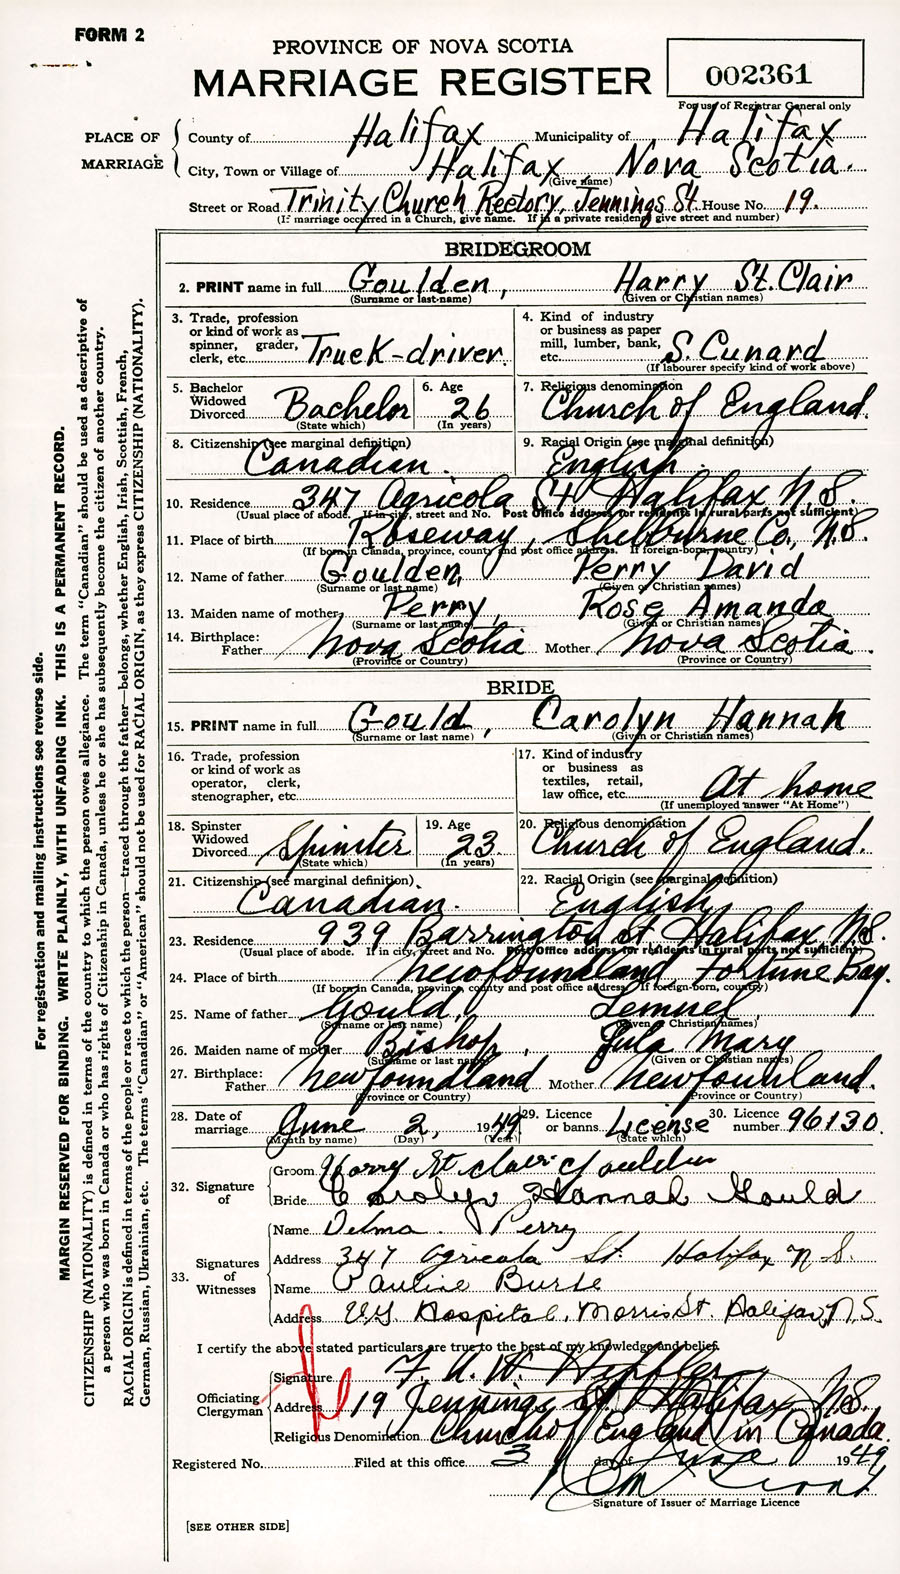 FORM 2
PROVINCE OF NOVA SCOTIA
MARRIAGE REGISTER
002361
For use of Registrar General only
PLACE OF MARRIAGE
County of Halifax Municipality of Halifax
City, Town or Village of Halifax Nova Scotia.
(Give name)
Street or Road Trinity Church Rectory, Jennings St. House No. 19.
(If marriage occurred in a Church, give name. If in a private residence give street and number)
BRIDEGROOM
2. PRINT name in full Goulden, Harry St. Clair
(Surname or last name) (Given or Christian names)
3. Trade, profession or kind of work as spinner, grader, clerk, etc. Truck-driver
4. Kind of industry or business as paper mill, lumber, bank, etc. S. Cunard
(If labourer specify kind of work above)
5. Bachelor Widowed Divorced Bachelor
(State which)
6. Age 26
(In years)
7. Religious denomination Church of England.
8. Citizenship (see marginal definition) Canadian.
9. Racial Origin (see marginal definition) English.
10. Residence 347 Agricola St Halifax N.S.
(Usual place of abode. If in city, street and No. Post Office address for residents in rural parts not sufficient)
11. Place of birth Roseway, Shelburne Co., N.S.
(If born in Canada, province, county and post office address. If foreign-born, country)
12. Name of father Goulden, Perry David
(Surname or last name) (Given or Christian names)
13. Maiden name of mother Perry, Rose Amanda
(Surname or last name) (Given or Christian names)
14. Birthplace: Father Nova Scotia Mother Nova Scotia.
(Province or Country) (Province or Country)
BRIDE
15. PRINT name in full Gould, Carolyn Hannah
(Surname or last name) (Given or Christian names)
16. Trade, profession or kind of work as operator, clerk, stenographer, etc.
17. Kind of industry or business as textiles, retail, law office, etc. At home
(If unemployed answer "At Home")
18. Spinster Widowed Divorced Spinster
(State which)
19. Age 23.
(In years)
20. Religious denomination Church of England.
21. Citizenship (see marginal definition) Canadian.
22. Racial Origin (see marginal definition) English.
23. Residence 939 Barrington St Halifax N.S.
(Usual place of abode. If in city, street and No. Post Office address for residents in rural parts not sufficient)
24. Place of birth Newfoundland Fortune Bay.
(If born in Canada, province, county and post office address. If foreign-born, country)
25. Name of father Gould, Lemuel,
(Surname or last name) (Given or Christian names)
26. Maiden name of mother Bishop, Jula Mary
(Surname or last name) (Given or Christian names)
27. Birthplace: Father Newfoundland Mother Newfounland.
(Province or Country) (Province or Country)
28. Date of marriage June 2, 1949
(Month by name) (Day) (Year)
29. Licence or banns License
(State which)
30. Licence number 96130
32. Signature of
Groom Harry St clair Goulden
Bride Carolyn Hannah Gould
33. Signatures of Witnesses
Name Delma Perry
Address 347 Agricola St. Halifax N S.
Name Pauline Burke
Address V.G. Hospital, Morris St. Halifax, N.S.
I certify the above stated particulars are true to the best of my knowledge and belief.
Officiating Clergyman
Signature F. A. W.
Address 19 Jennings St. Halifax N.S.
Religious Denomination Church of England in Canada.
Registered No. Filed at this office 3 day of June 1949
Signature of Issuer of Marriage Licence
[SEE OTHER SIDE]
For registration and mailing instructions see reverse side.
MARGIN RESERVED FOR BINDING. WRITE PLAINLY, WITH UNFADING INK. THIS IS A PERMANENT RECORD.
CITIZENSHIP (NATIONALITY) is defined in terms of the country to which the person owes allegiance. The term "Canadian" should be used as descriptive of
a person who was born in Canada or who has rights of Citizenship in Canada, unless he or she has subsequently become the citizen of another country.
RACIAL ORIGIN is defined in terms of the people or race to which the person—traced through the father—belongs, whether English, Irish, Scottish, French,
German, Russian, Ukrainian, etc. The terms "Canadian" or "American" should not be used for RACIAL ORIGIN, as they express CITIZENSHIP (NATIONALITY).